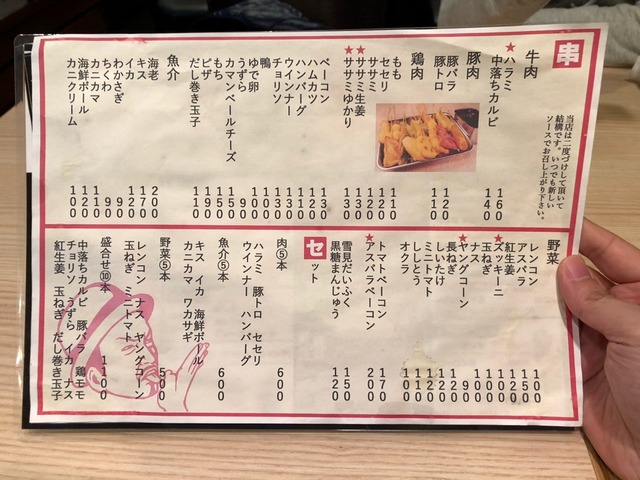 串
当店は二度づけして頂いて
結構です。いつでも新しい
ソースでお召し上がり下さい。
牛肉
★ハラミ 160
中落ちカルビ 140
豚肉
豚バラ 120
豚トロ 110
鶏肉
もも 110
セセリ 120
ササミ 110
★ササミ生姜 130
★ササミゆかり 130
ベーコン 130
ハムカツ 120
ハンバーグ 110
ウインナー 100
チョリソ 130
鴨 130
ゆで卵 100
うずら 90
カマンベールチーズ 150
もち 100
ピザ 190
だし巻き玉子 150
魚介
海老 200
キス 170
イカ 100
わかさぎ 90
ちくわ 90
カニカマ 110
海鮮ボール 120
カニクリーム 100
野菜
レンコン 100
アスパラ 150
紅生姜 120
★ズッキーニ 100
玉ねぎ 100
ナス 100
★ヤングコーン 90
長ねぎ 100
しいたけ 120
ミニトマト 120
ししとう 110
オクラ 100
トマトベーコン 170
★アスパラベーコン 200
雪見だいふく 150
黒糖まんじゅう 120
セット
肉⑤本 600
ハラミ 豚トロ セセリ
ウインナー ハンバーグ
魚介⑤本 600
キス イカ 海鮮ボール
カニカマ ワカサギ
野菜⑤本 500
レンコン ナス ヤングコーン
玉ねぎ ミニトマト
盛合せ⑩本 1100
中落ちカルビ 豚バラ 鶏モモ
チョリソ うずら イカ ナス
紅生姜 玉ねぎ だし巻き玉子